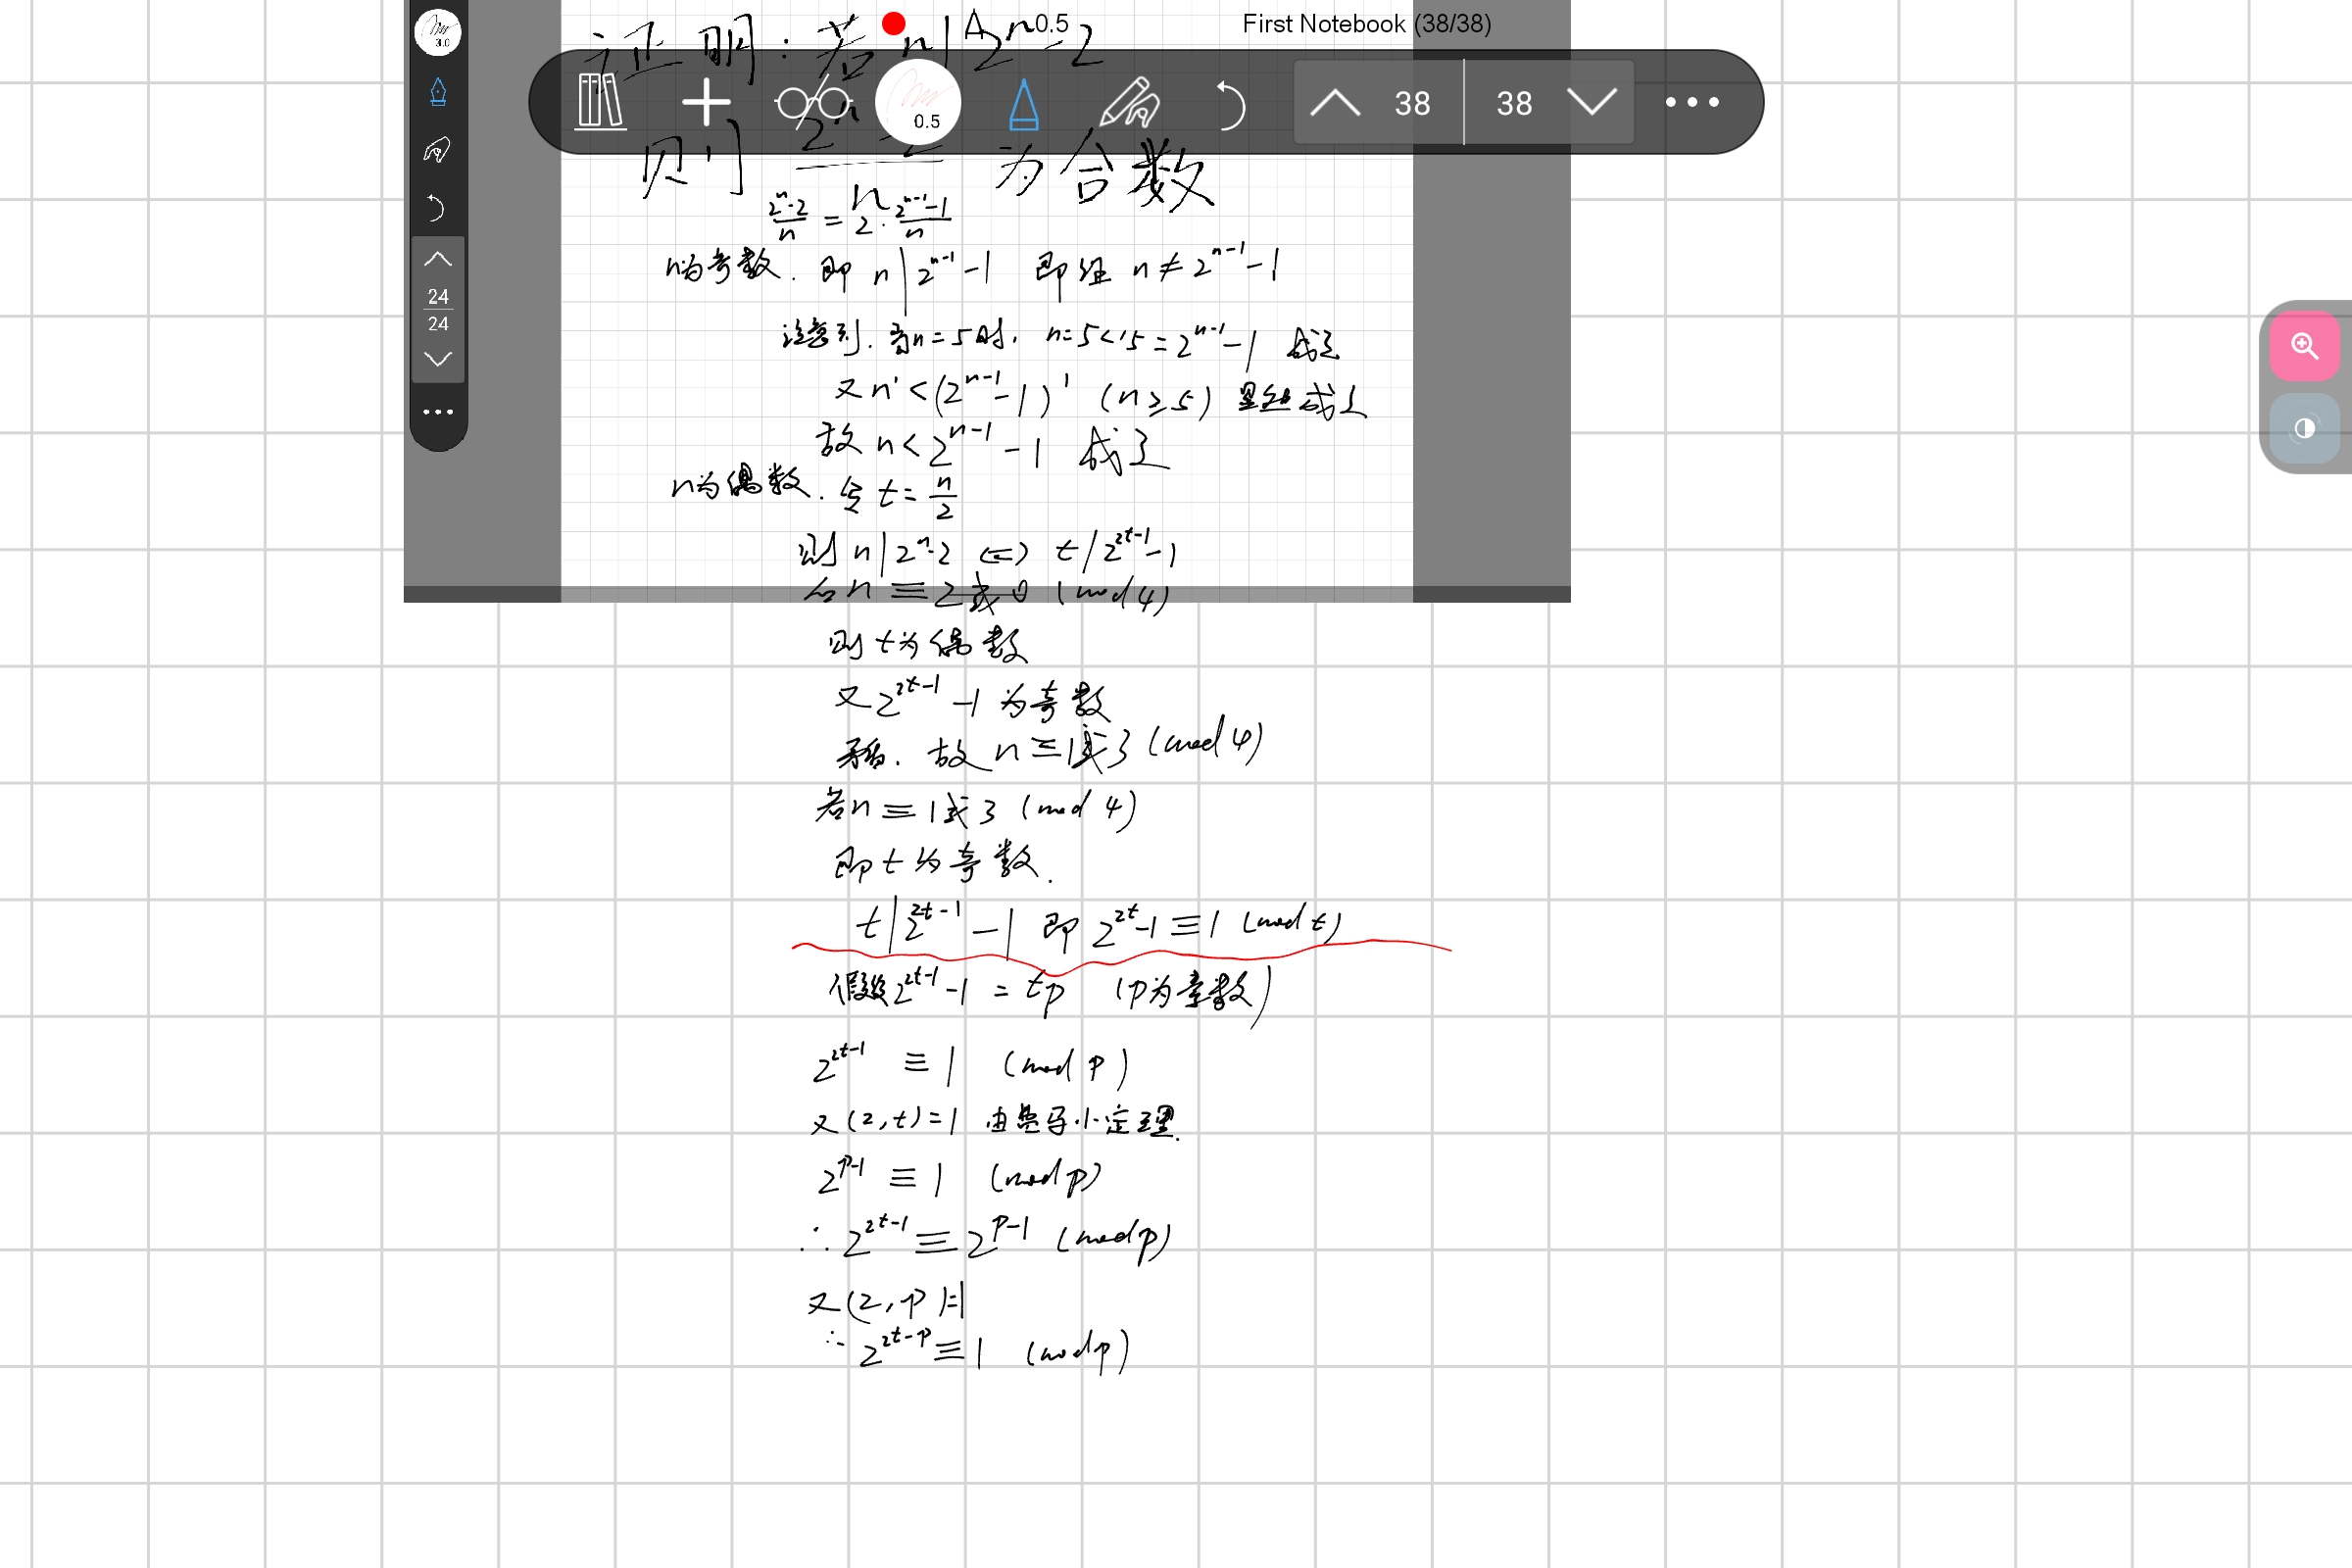 0.5
First Notebook (38/38)
3.0
证明：若 n | 2ⁿ-2
0.5
38 38
则 2ⁿ-2/n 为合数
(2ⁿ-2)/n = 2·(2ⁿ⁻¹-1)/n
n为奇数. 即 n | 2ⁿ⁻¹-1 即证 n ≠ 2ⁿ⁻¹-1
24
24
注意到. 当n=5时, n=5<15=2ⁿ⁻¹-1 成立
又 n' < (2ⁿ⁻¹-1)' (n≥5) 显然成立
故 n < 2ⁿ⁻¹-1 成立
n为偶数. 令 t = n/2
则 n | 2ⁿ-2 ⇔ t | 2²ᵗ⁻¹-1
若 n ≡ 2或0 (mod 4)
则 t为偶数
又 2²ᵗ⁻¹-1 为奇数
矛盾. 故 n ≡ 1或3 (mod 4)
若n ≡ 1或3 (mod 4)
即 t 为奇数.
t | 2²ᵗ⁻¹-1 即 2²ᵗ-1 ≡ 1 (mod t)
假设 2²ᵗ⁻¹-1 = tp (p为素数)
2²ᵗ⁻¹ ≡ 1 (mod p)
又 (2,t)=1 由费马小定理.
2ᵖ⁻¹ ≡ 1 (mod p)
∴ 2²ᵗ⁻¹ ≡ 2ᵖ⁻¹ (mod p)
又 (2,p)=1
∴ 2²ᵗ⁻ᵖ ≡ 1 (mod p)